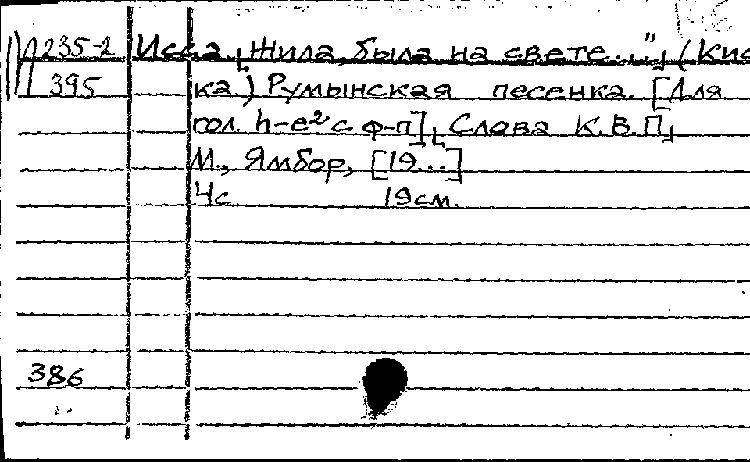 235-2 Исса. „Жила, была на свете...", (Кис
395 ка) Румынская песенка. [Для
гол. h-e² с ф-п], Слова К.В.П.,
М., Ямбор, [19...]
4с 19см.
386